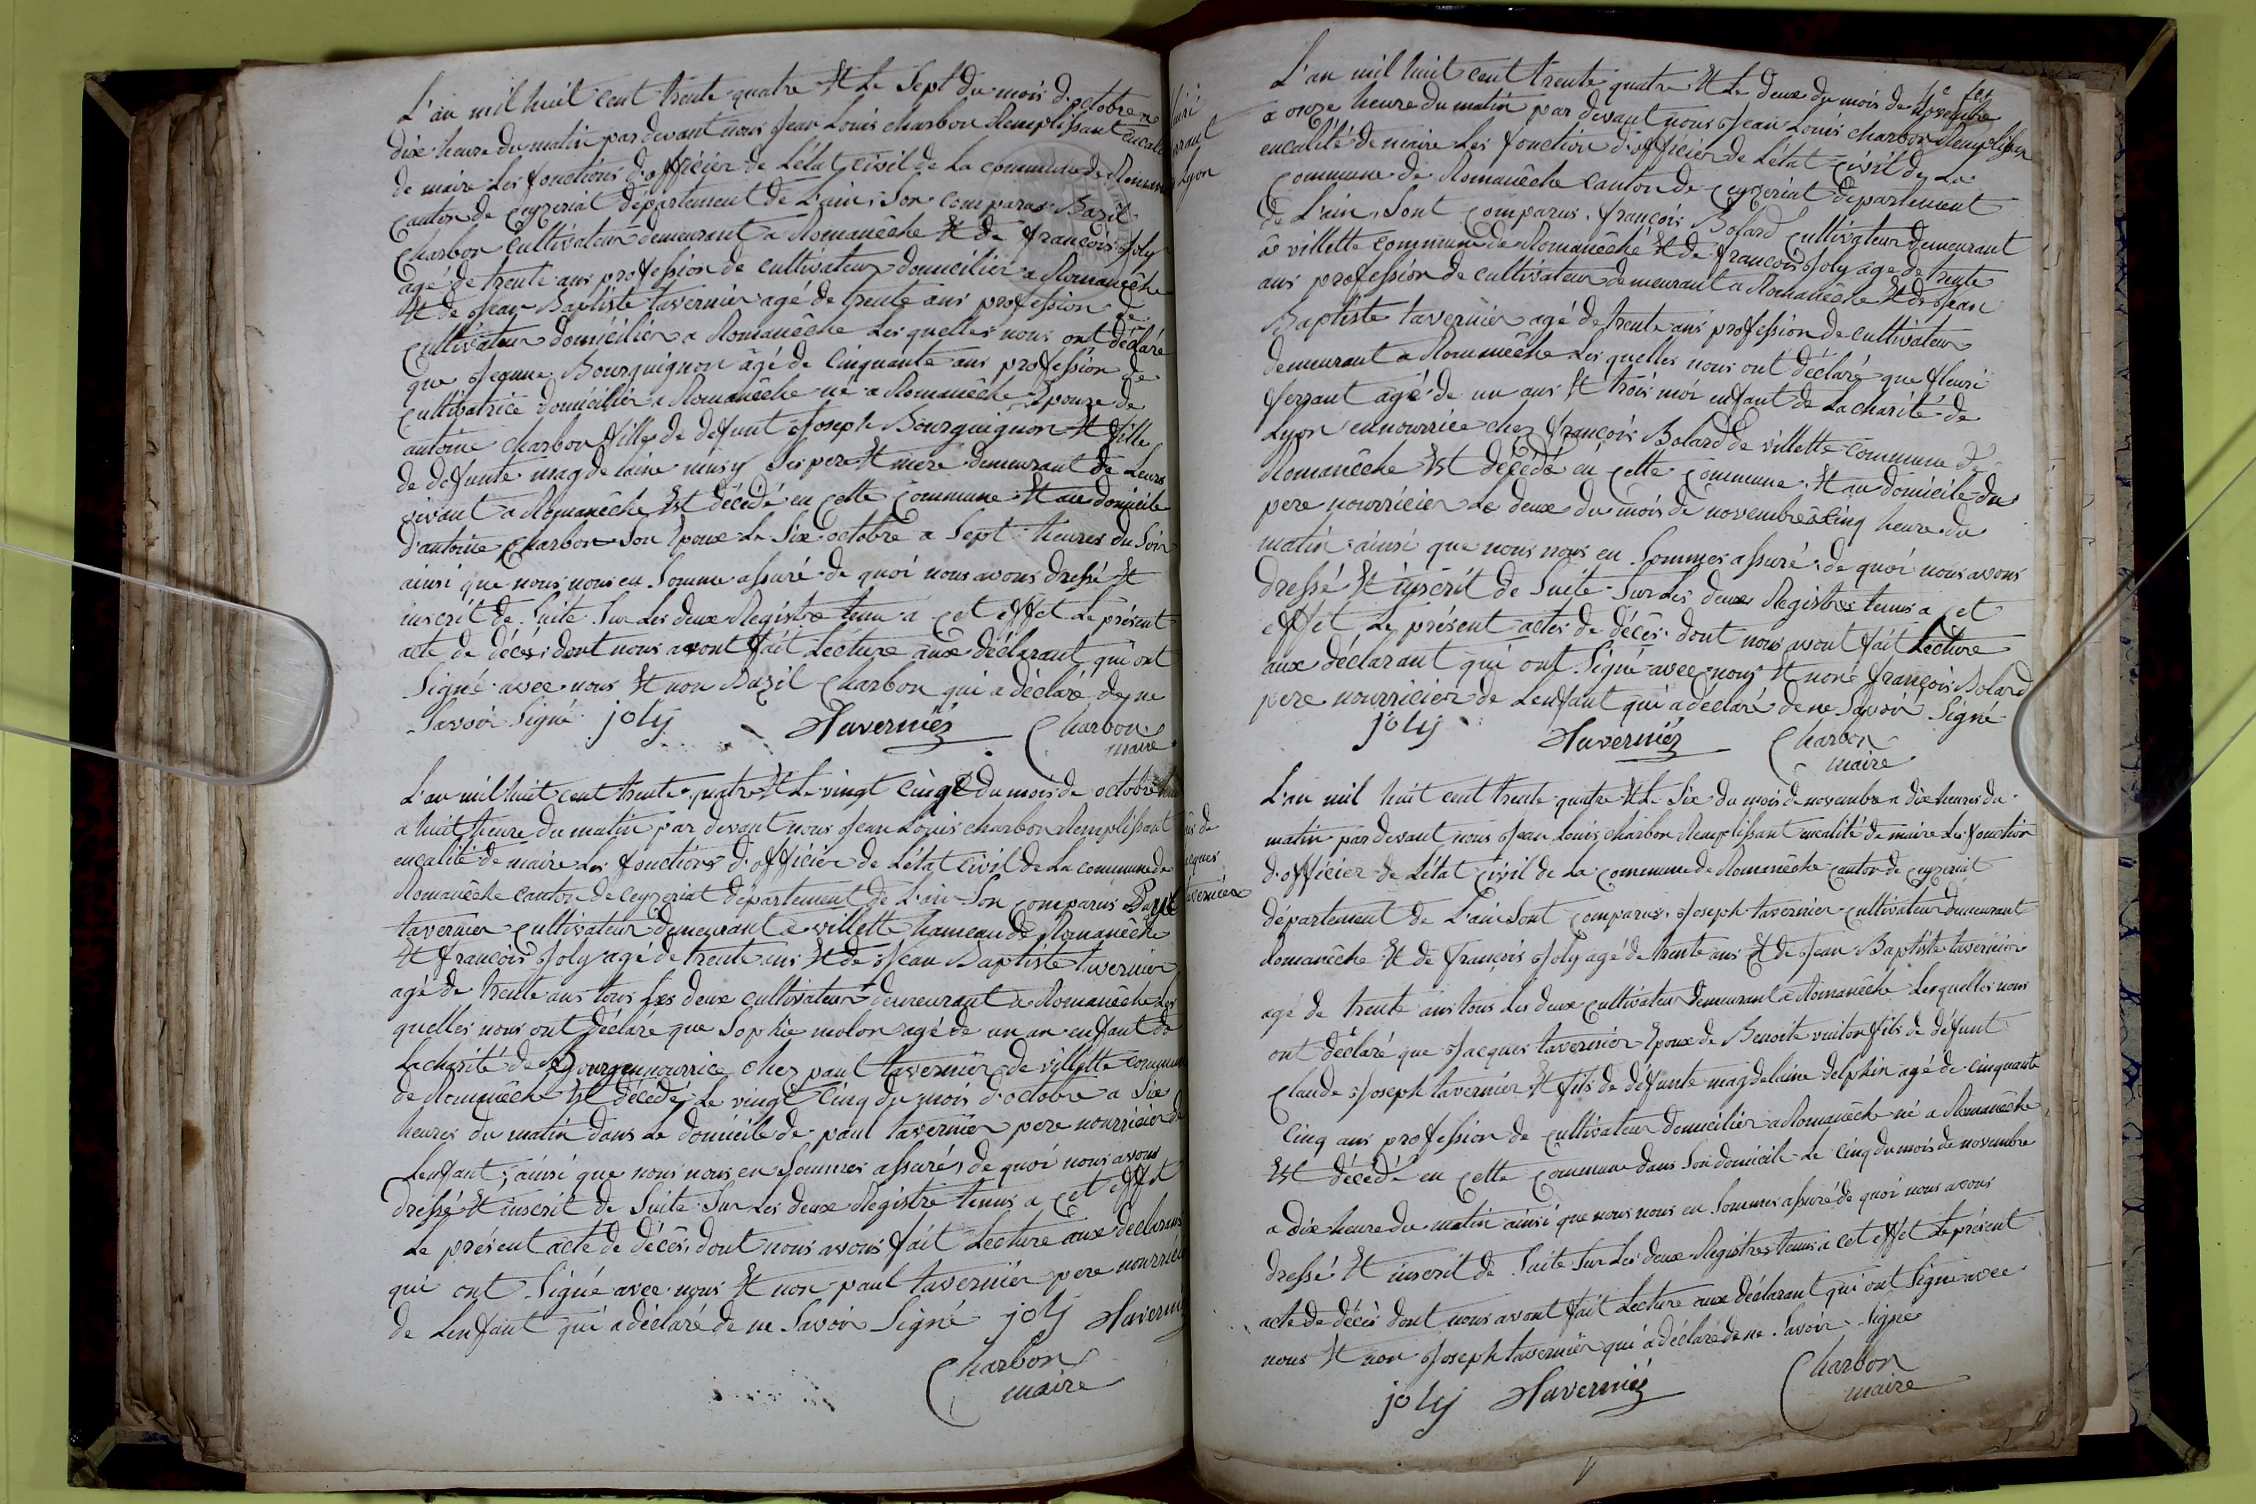 L'an mil huit cent trente quatre Et Le Sept du mois d'octobre a
dix heure du matin par devant nous Jean Louis charbon Remplissant encalité
de maire Les fonctions d'officier de L'état Civil de La commune de
canton de Ceyzeriat département de L'ain, Son Comparus Bazil
Charbon Cultivateur demeurant a Romanêche Et de françois Joly
agé de trente ans profession de cultivateur domicilier a Romanêche
Et de Jean Baptiste tavernier agé de trente ans profession de
Cultivateur domicilier a Romanêche Les quelles nous ont déclaré
que Jeanne Bourguignon âgé de Cinquante ans profession de
Cultivatrice domicilier a Romanêche né a Romanêche Epouze de
antoine Charbon fille de défunt Joseph Bourguignon Et fille
de defunte magdelaine Ses pere Et mere demeurant de Leurs
vivant a Romanêche Est décédé en Cette Commune Et au domicile
d'antoine Charbon Son Epoux Le Six octobre a Sept heures du Soir
ainsi que nous nous en Somme assuré de quoi nous avons dressé Et
inscrit de Suite Sur Les deux Registre tenu a Cet effet Le présent
acte de décés, dont nous avont fait Lecture aux déclarant qui ont
Signé avec nous Et non Bazil Charbon qui a déclaré de ne
Savoir Signé joly Tavernier Charbon
maire
L'an mil huit cent trente quatre Et Le vingt cinq du mois de octobre
a huit heure du matin par devant nous Jean Louis charbon Remplissant
encalité de maire Les fonctions d'officier de L'état Civil de La commune de
Romanêche canton de Ceyzeriat département de L'ain Son Comparus Paul
tavernier Cultivateur demeurant a villette hameau de Romanêche
Et françois Joly agé de trente ans Et de Jean Baptiste tavernier
agé de trente ans tous Les deux cultivateur demeurant a Romanêche Les
quelles nous ont déclaré que Sophie molon agé de un an enfant de
La charité de Bourg ennourrice chez paul tavernier de villette commune
de Romanêche Est décédé Le vingt Cinq du mois d'octobre a Six
heures du matin dans Le domicile de paul tavernier pere nourricier de
Lenfant; ainsi que nous nous en Sommes assurés, de quoi nous avons
dressé Et inscrit de Suite Sur Les deux Registre tenus a Cet effet
Le présent acte de décês, dont nous avons fait Lecture aux déclarans
qui ont Signé avec nous Et non paul tavernier pere nourricier
de Lenfant qui a déclaré de ne Savoir Signé joly
Charbon
maire
Lyon
L'an mil huit cent trente quatre Et Le deux du mois de novembre
a onze heure du matin par devant nous Jean Louis charbon Remplissan
encalité de maire Les fonction d'officier de L'état Civil de La
Commune de Romanêche canton de Ceyzeriat département
de L'ain, Sont Comparus, françois Bolard Cultivateur demeurant
a villette Commune de Romanêche Et de françois Joly age de trente
ans profession de cultivateur demeurant a Romanêche Et de Jean
Baptiste tavernier agé de trente ans profession de cultivateur
demeurant a Romanêche Les quelles nous ont déclaré que fleuri
ferrant agé de un ans Et trois moi enfant de La charité de
Lyon ennourrice chez françois Bolard de villette commune de
Romanêche Est décédé en Cette Commune, Et au domicile du
pere nourricier Le deux du mois de novembre a Cinq heure du
matin ainsi que nous nous en Sommes assuré, de quoi nous avons
dressé Et inscrit de Suite Sur Les deux Registres tenus a Cet
effet Le présent actes de décês, dont nous avont fait Lecture
aux déclarant qui ont Signé avec nous Et non françois Bolard
pere nourricier de Lenfant qui a déclaré de ne Savoir Signé
joly Tavernier Charbon
maire
L'an mil huit cent trente quatre Et Le Six du mois de novembre a dix heures du
matin par devant nous Jean Louis charbon Remplissant encalité de maire Les fonction
d'officier de L'état Civil de La commune de Romanêche canton de Ceyzeriat
département de L'ain Sont Comparus, Joseph tavernier cultivateur demeurant
Romanêche Et de françois Joly agé de trente ans Et de Jean Baptiste tavernier
agé de trente ans tous Les deux Cultivateur demeurant a Romanêche Lesquelles nous
ont déclaré que Jacques tavernier Epoux de Benoite fils de défunt
Claude Joseph tavernier Et fils de défunte magdelaine delphin agé de cinquante
Cinq ans profession de cultivateur domicilier a Romanêche né a Romanêche
Est décédé en Cette Commune dans Son domicile Le Cinq du mois de novembre
a dix heure du matin ainsi que nous nous en Sommes assuré de quoi nous avons
dressé Et inscrit de Suite Sur Les deux Registres tenus a cet effet Le présent
acte de décès dont nous avont fait Lecture aux déclarant qui ont Signé avec
nous Et non Joseph tavernier qui a déclaré de ne Savoir Signé
joly Tavernier Charbon
maire